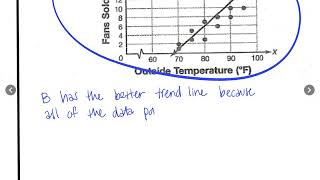 Fans Sold
12
10
8
6
4
2
0
60 70 80 90 100
x
Outside Temperature (°F)
B has the better trend line because
all of the data po